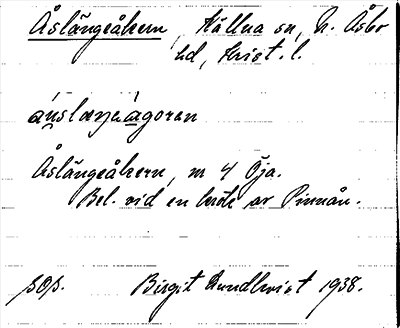 Åslängeåkern, Källna sn, N. Åsbo
hd, Krist. l.
ánslæŋeågoran
Åslängeåkern, nr 4 Öja.
Bel. vid en krök av Pinnån.
Birgit Lundkvist 1938.